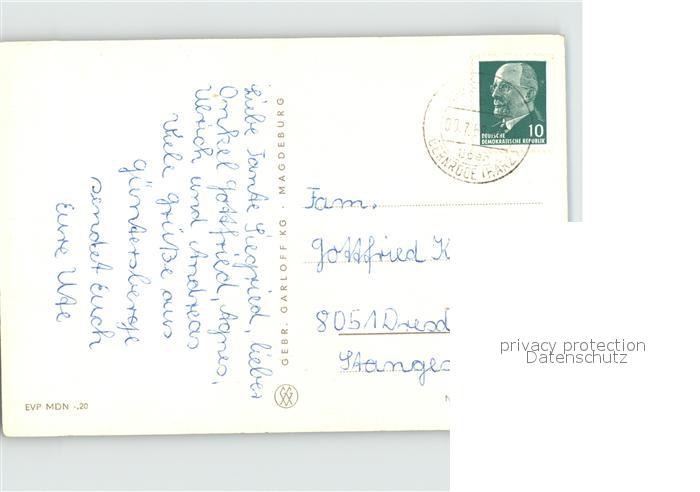 Liebe Tante Siegfried, lieber
Onkel Gottfried, Agnes,
Ulrich und Andreas
Viele Grüße aus
Güntersberge
sendet Euch
Eure Ute
GEBR. GARLOFF KG · MAGDEBURG
EVP MDN -.20
10
DEUTSCHE
DEMOKRATISCHE REPUBLIK
über
GERNRODE (HARZ)
Fam.
Gottfried K
8051 Dresd
privacy protection
Datenschutz